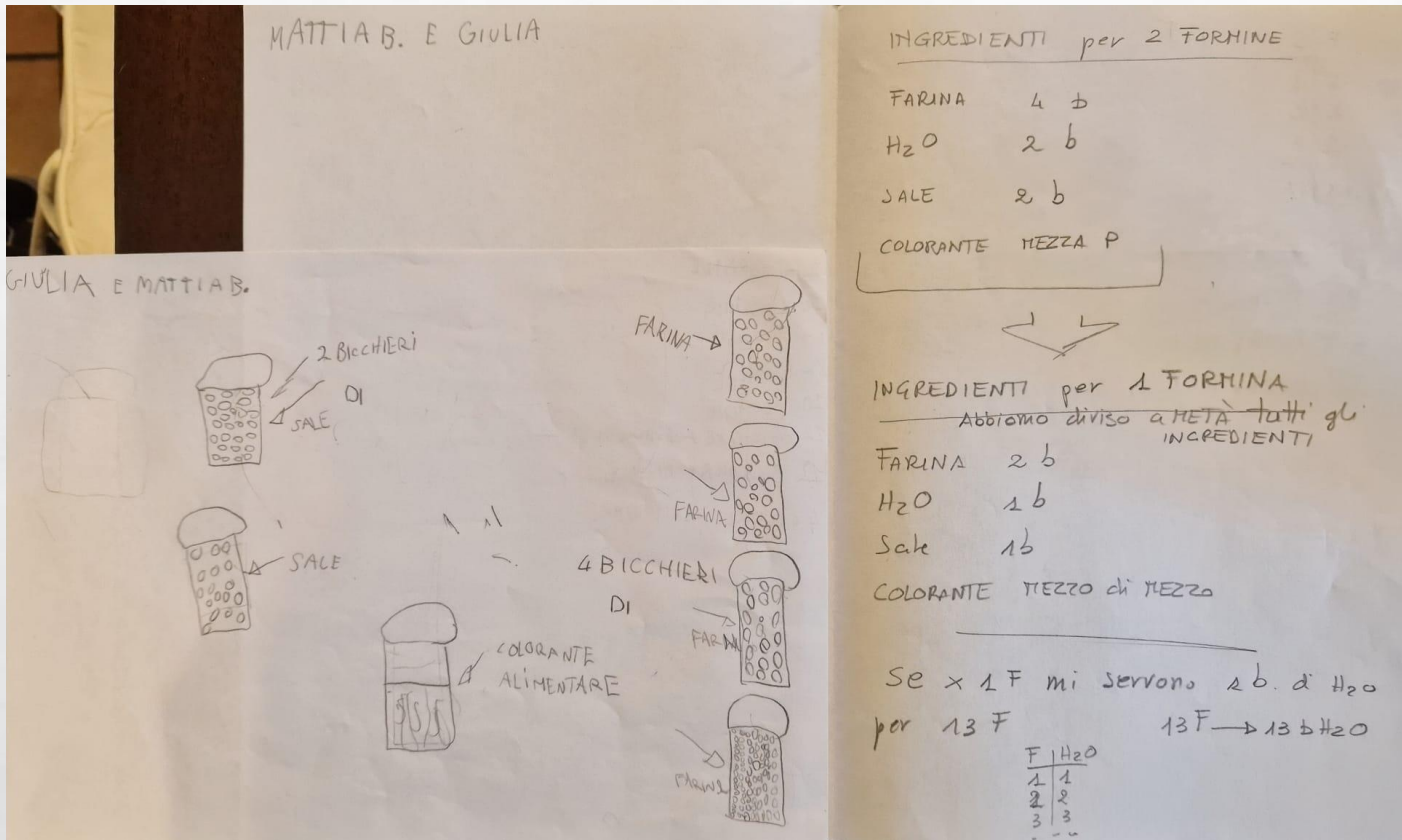 MATTIA B. E GIULIA
GIULIA E MATTIA B.
2 BICCHIERI
DI
SALE
SALE
COLORANTE
ALIMENTARE
FARINA
FARINA
4 BICCHIERI
DI
FARINA
FARINA
INGREDIENTI per 2 FORMINE
FARINA 4 b
H2O 2 b
SALE 2 b
COLORANTE MEZZA P
INGREDIENTI per 1 FORMINA
Abbiamo diviso a METÀ tutti gli
INGREDIENTI
FARINA 2 b
H2O 1 b
Sale 1b
COLORANTE MEZZO di MEZZO
Se x 1 F mi servono 1 b. di H2O
per 13 F 13F → 13 b H2O
F | H2O
1 | 1
2 | 2
3 | 3